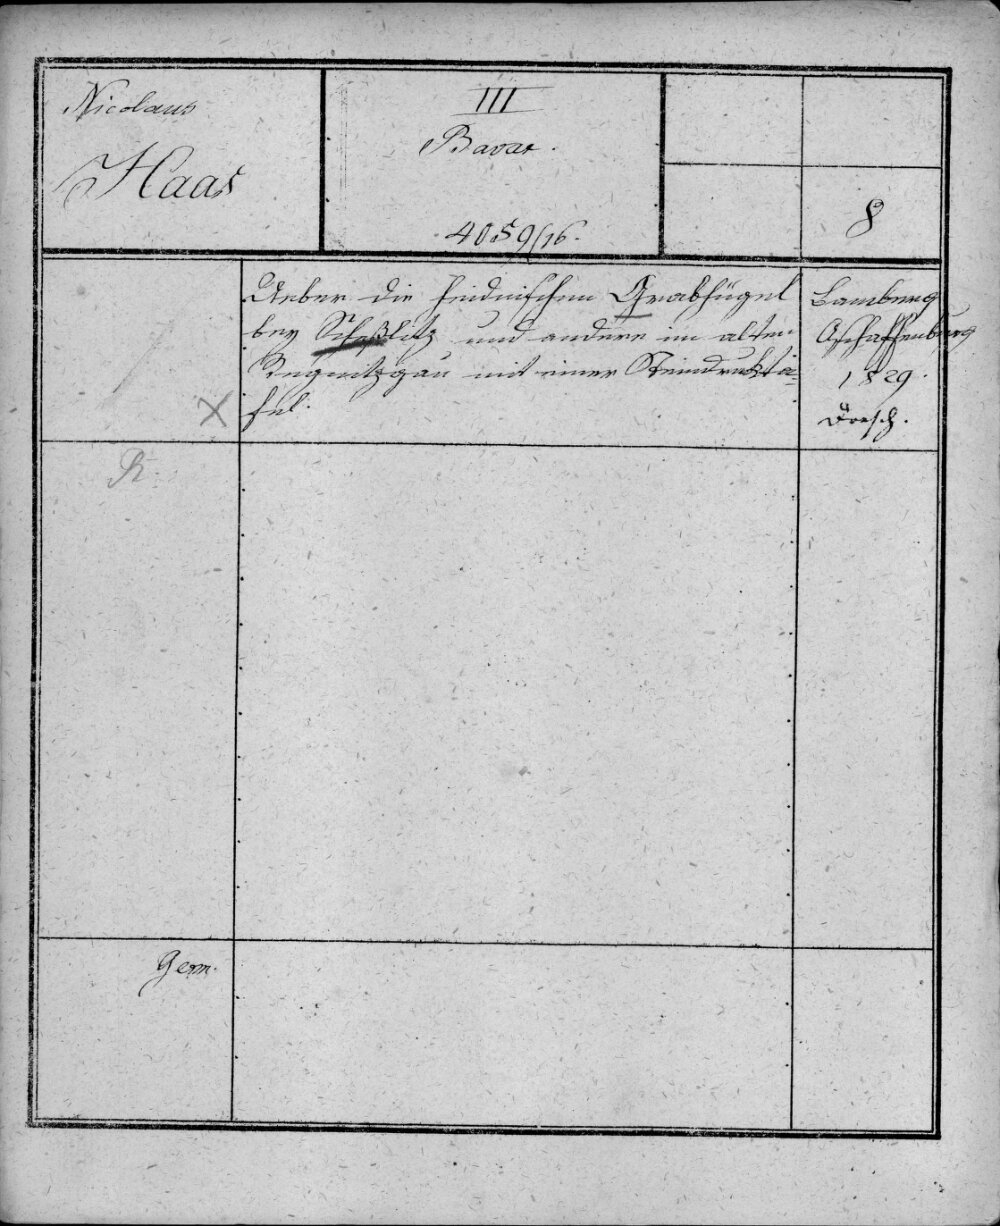 Nicolaus
Haas
III
Bavar.
4059/16.
8
Ueber die heidnischen Grabhügel
bey Scheßlitz und andere im alten
Regnitzgau mit einer Steindruckta=
fel.
Bamberg
Aschaffenburg
1829.
Dresch.
X
R.
Germ.